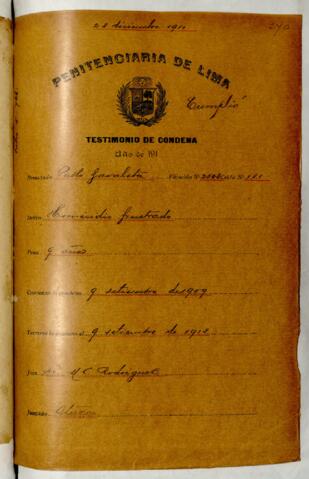 22 diciembre 1911
PENITENCIARIA DE LIMA
Cumplió
TESTIMONIO DE CONDENA
Año de 191
Penado Pablo Gavaleta Filiación Nº Celda Nº
Delito Homicidio frustrado
Pena 9 años
Comienza la condena 9 setiembre de 1909
Termina la condena el 9 setiembre de 1918
Juez Dr. M C Rodriguez
Juzgado